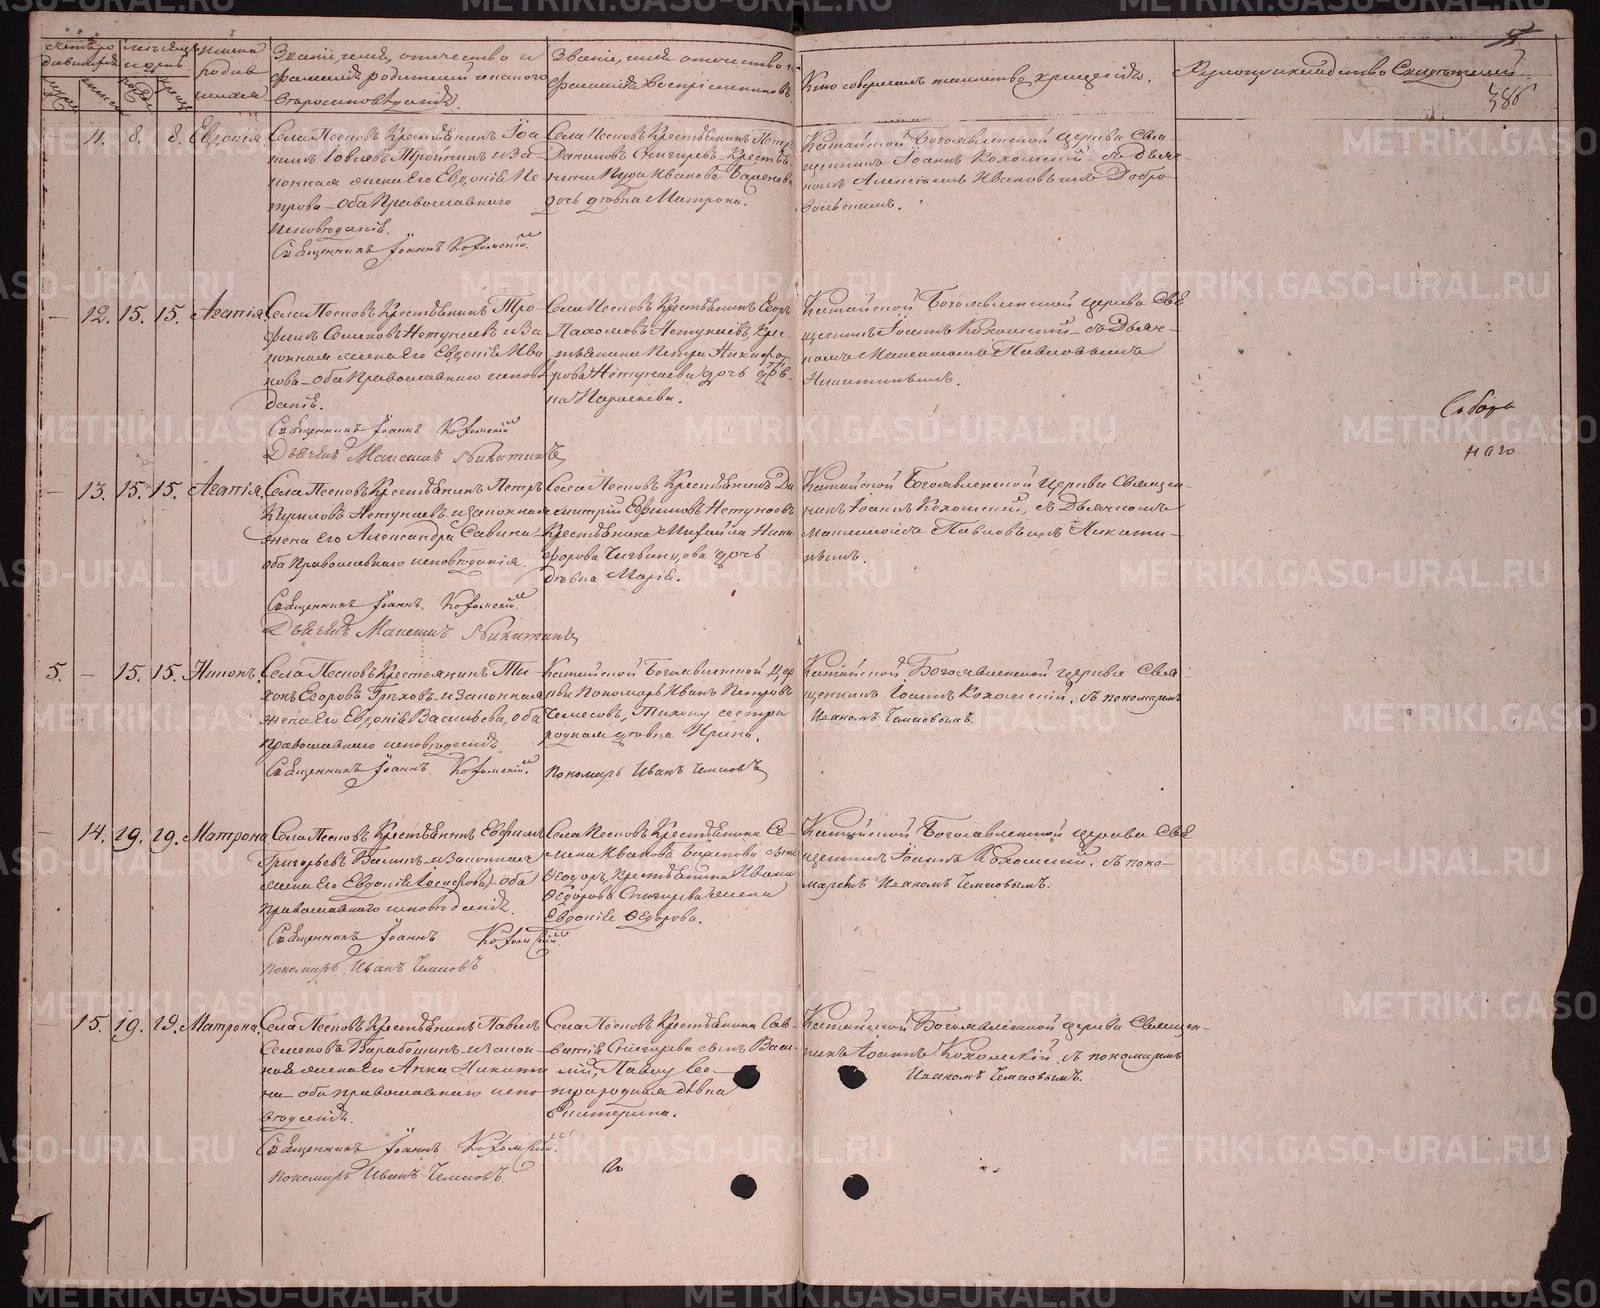 Званіе, имя, отечество и
фамилія родителей и какого
вѣроисповѣданія.
Званіе, имя, отечество и
фамилія воспріемниковъ
Кто совершалъ таинство крещенія.
Рукоприкладство Свидѣтелей
386
11. 8. 8. Евдокія
Села Песковъ Крестьянинъ Іоа
и за-
конная жена Его Евдокія Пе-
трова - оба Православнаго
исповѣданія.
Священникъ Іоаннъ Кохомскій
Села Песковъ Крестьянинъ Петръ
Даниловъ Снигиревъ Кресть
Иванова
дочь дѣвка Матрона.
Катайской Богоявленской церкви Свя-
щенникъ Іоаннъ Кохомскій съ Дьяч-
комъ Алексѣемъ Ивановымъ Добро
вольскимъ.
12. 15. 15. Агапія
Села Песковъ Крестьянинъ Тро-
фимъ Семеновъ Нетунаевъ и за
конная жена Его Евдокія Ива
нова - оба Православнаго исповѣ
данія.
Священникъ Іоаннъ Кохомскій
Дьячекъ Максимъ Никитинъ
Села Песковъ Крестьянинъ Егоръ
Пахомовъ Нетунаевъ, Кре-
стьянина Петра Никифо
рова Нетунаева дочь дѣв-
ка
Катайской Богоявленской церкви Свя
щенникъ Іоаннъ Кохомскій съ Дьяч-
комъ Максимомъ Павловымъ
Никитинымъ.
Соборн
наго
13. 15. 15. Агапія
Села Песковъ Крестьянинъ Петръ
Кириловъ Нетунаевъ и законная
жена Его Александра Савина
оба Православнаго исповѣданія.
Священникъ Іоаннъ Кохомскій
Дьячекъ Максимъ Никитинъ
Села Песковъ Крестьянинъ Ди
митрій Ефимовъ Нетунаевъ
Крестьянина Михайла Ники
форова дочь
дѣвка Марія.
Катайской Богоявленской церкви Священ-
никъ Іоаннъ Кохомскій, съ Дьячкомъ
Максимомъ Павловымъ Никити-
нымъ.
5. - 15. 15. Никонъ
Села Песковъ Крестьянинъ Ти-
хонъ Егоровъ Грѣховъ и законная
жена Его Евдокія Васильева, оба
православнаго исповѣданія.
Священникъ Іоаннъ Кохомскій.
Катайской Богоявленской Цер
кви Пономарь Иванъ Петровъ
Чемесовъ, Тихону сестра
родная дѣвка Ирина.
Пономарь Иванъ Чемесовъ
Катайской Богоявленской церкви Свя-
щенникъ Іоаннъ Кохомскій, съ пономаремъ
Иваномъ Чемесовымъ.
14. 19. 19. Матрона
Села Песковъ Крестьянинъ Евфимъ
Григорьевъ и законная
жена Его Евдокія оба
православнаго исповѣданія.
Священникъ Іоаннъ Кохомскій
пономарь Иванъ Чемесовъ
Села Песковъ Крестьянина Се-
мена Иванова сынъ
Ѳеодоръ, Крестьянина Ивана
Ѳедорова Снигирева жена
Евдокія Ѳедорова.
Катайской Богоявленской церкви Свя
щенникъ Іоаннъ Кохомскій, съ поно-
маремъ Иваномъ Чемесовымъ.
15. 19. 19. Матрона
Села Песковъ Крестьянинъ Павелъ
Семеновъ и закон
ная жена Его Анна Никити
на оба православнаго испо
вѣданія.
Священникъ Іоаннъ Кохомскій.
пономарь Иванъ Чемесовъ
Села Песковъ Крестьянина Сав-
ватія Снигирева сынъ Васи-
лій, Павлу се-
стра родная дѣвка
Екатерина.
Катайской Богоявленской церкви Священ-
никъ Іоаннъ Кохомскій, съ пономаремъ
Иваномъ Чемесовымъ.
METRIKI.GASO-URAL.RU